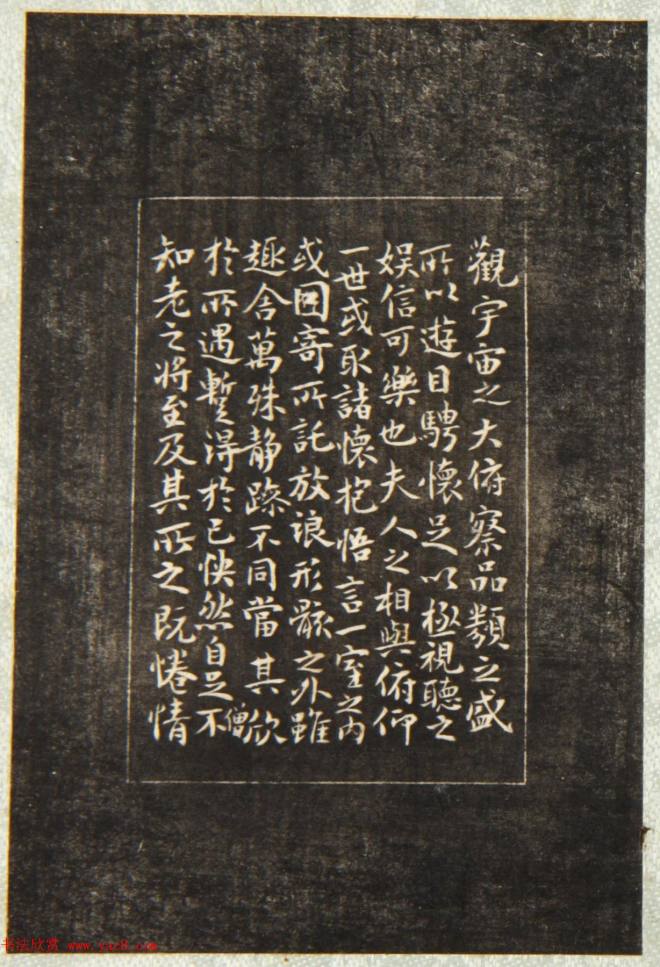 觀宇宙之大俯察品類之盛
所以遊目騁懷足以極視聽之
娱信可樂也夫人之相與俯仰
一世或取諸懷抱悟言一室之内
或因寄所託放浪形骸之外雖
趣舍萬殊静躁不同當其欣
於所遇蹔得於己快然自足不
僧
知老之将至及其所之既惓情
书法欣赏 www.yac8.com